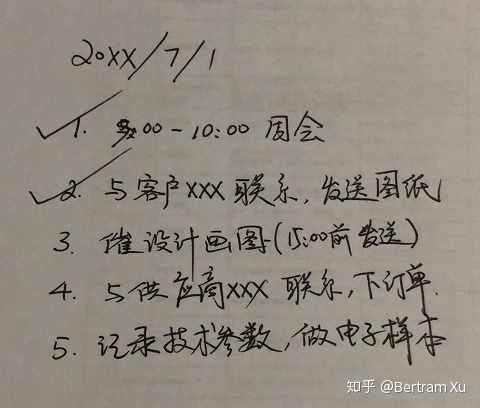 20XX/7/1
✓1. :00-10:00 周会
✓2. 与客户XXX联系,发送图纸
3. 催设计画图(15:00前发送)
4. 与供应商XXX联系,下订单.
5. 记录技术参数,做电子样本
知乎 @Bertram Xu